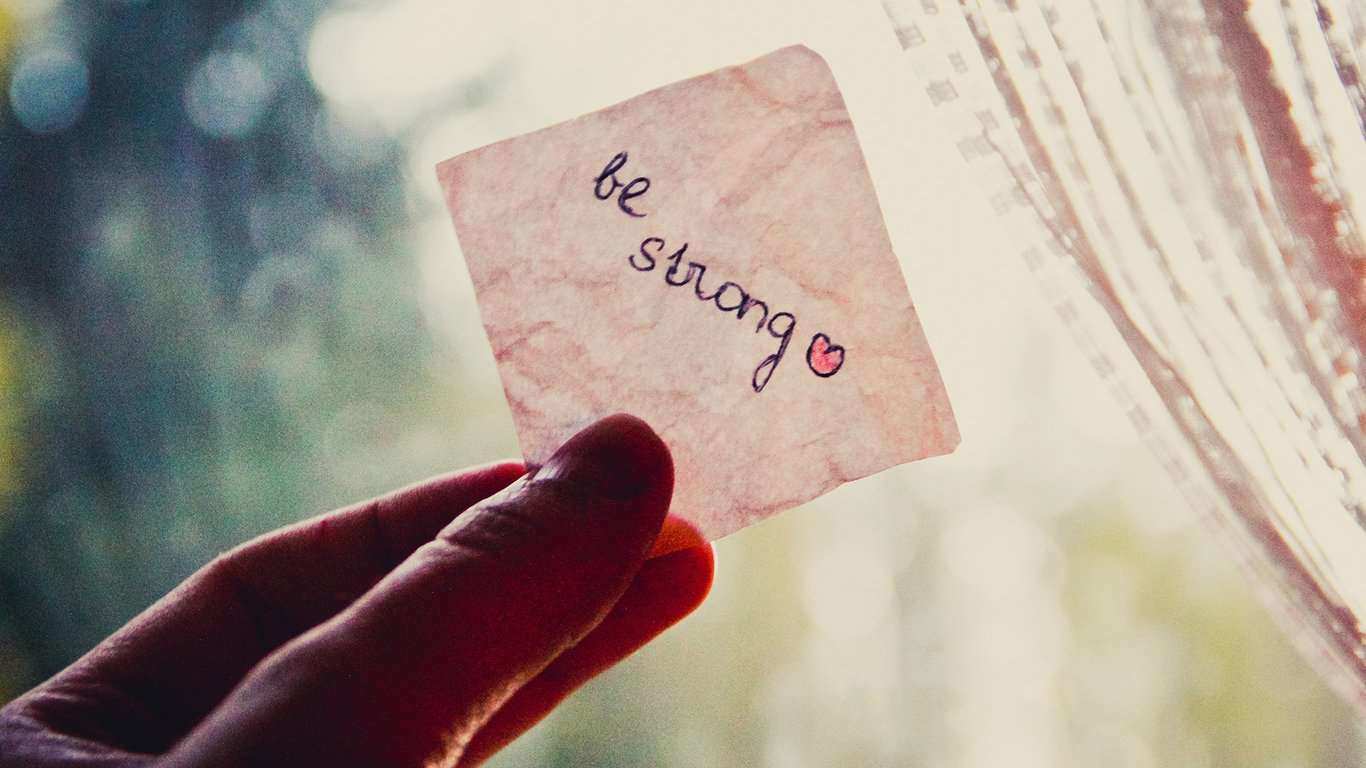 be
strong